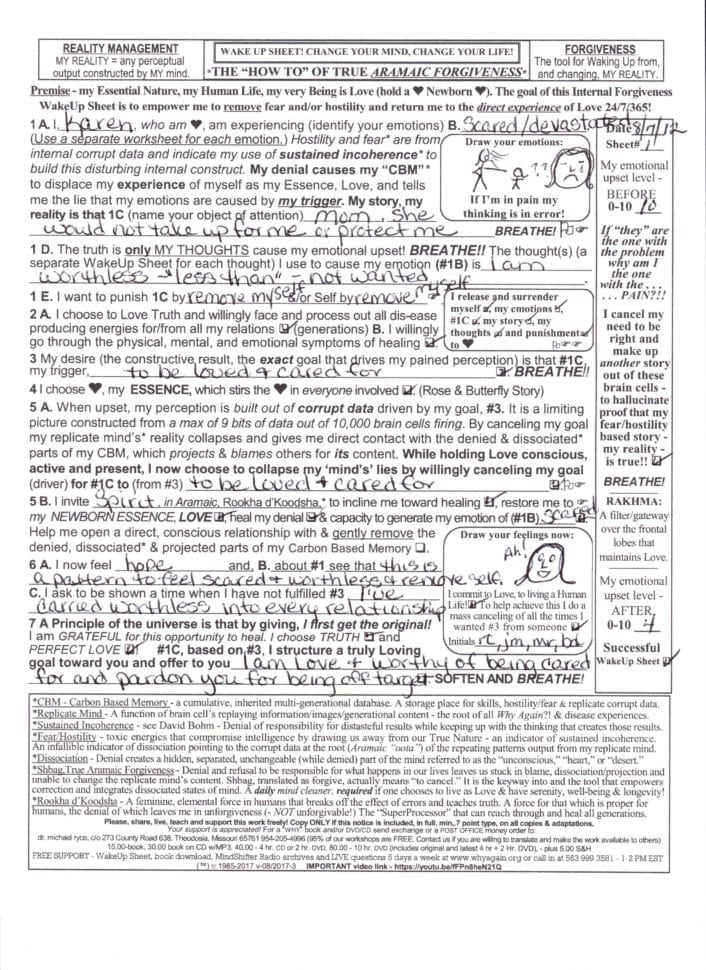 REALITY MANAGEMENT
MY REALITY = any perceptual
output constructed by MY mind.
WAKE UP SHEET! CHANGE YOUR MIND, CHANGE YOUR LIFE!
*THE "HOW TO" OF TRUE ARAMAIC FORGIVENESS*
FORGIVENESS
The tool for Waking Up from,
and changing, MY REALITY.
Premise - my Essential Nature, my Human Life, my very Being is Love (hold a ♥ Newborn ♥). The goal of this Internal Forgiveness
WakeUp Sheet is to empower me to remove fear and/or hostility and return me to the direct experience of Love 24/7/365!
1 A. I, Karen, who am ♥, am experiencing (identify your emotions) B. Scared/devastated
(Use a separate worksheet for each emotion.) Hostility and fear* are from
internal corrupt data and indicate my use of sustained incoherence* to
build this disturbing internal construct. My denial causes my "CBM"*
to displace my experience of myself as my Essence, Love, and tells
me the lie that my emotions are caused by my trigger. My story, my
reality is that 1C (name your object of attention) Mom. She
would not take up for me or protect me BREATHE!
Draw your emotions:
???
If I'm in pain my
thinking is in error!
Date 8/7/12
Sheet# 1
My emotional
upset level -
BEFORE
0-10 10
1 D. The truth is only MY THOUGHTS cause my emotional upset! BREATHE!! The thought(s) (a
separate WakeUp Sheet for each thought) I use to cause my emotion (#1B) is I am
worthless - "less than" - not wanted
1 E. I want to punish 1C by remove myself &/or Self by remove myself
2 A. I choose to Love Truth and willingly face and process out all dis-ease
producing energies for/from all my relations ☑ (generations) B. I willingly
go through the physical, mental, and emotional symptoms of healing ☑
I release and surrender
myself ☑, my emotions ☑,
#1C ☑, my story ☑, my
thoughts ☑ and punishment ☑
to ♥
3 My desire (the constructive result, the exact goal that drives my pained perception) is that #1C,
my trigger, to be loved + cared for ☑ BREATHE!!
4 I choose ♥, my ESSENCE, which stirs the ♥ in everyone involved ☑. (Rose & Butterfly Story)
5 A. When upset, my perception is built out of corrupt data driven by my goal, #3. It is a limiting
picture constructed from a max of 9 bits of data out of 10,000 brain cells firing. By canceling my goal
my replicate mind's* reality collapses and gives me direct contact with the denied & dissociated*
parts of my CBM, which projects & blames others for its content. While holding Love conscious,
active and present, I now choose to collapse my 'mind's' lies by willingly canceling my goal
(driver) for #1C to (from #3) to be loved + cared for
5 B. I invite Spirit, in Aramaic, Rookha d'Koodsha,* to incline me toward healing ☑, restore me to
my NEWBORN ESSENCE, LOVE ☑, heal my denial ☑ & capacity to generate my emotion of (#1B) Scared ☑.
Help me open a direct, conscious relationship with & gently remove the
denied, dissociated* & projected parts of my Carbon Based Memory ☐.
6 A. I now feel hope and, B. about #1 see that this is
a pattern to feel scared + worthless + remove self.
C. I ask to be shown a time when I have not fulfilled #3 I've
carried worthless into every relationship
Draw your feelings now:
Ah!
I commit to Love, to living a Human
Life! ☑ To help achieve this I do a
mass canceling of all the times I
wanted #3 from someone ☑
Initials rt, jm, mr, bd
7 A Principle of the universe is that by giving, I first get the original!
I am GRATEFUL for this opportunity to heal. I choose TRUTH ☑ and
PERFECT LOVE ☑ #1C, based on,#3, I structure a truly Loving
goal toward you and offer to you I am Love + worthy of being cared
for and pardon you for being off target. SOFTEN AND BREATHE!
If "they" are
the one with
the problem
why am I
the one
with the . . .
. . . PAIN?!!
I cancel my
need to be
right and
make up
another story
out of these
brain cells -
to hallucinate
proof that my
fear/hostility
based story -
my reality -
is true!! ☑
BREATHE!
RAKHMA:
A filter/gateway
over the frontal
lobes that
maintains Love.
My emotional
upset level -
AFTER,
0-10 4
Successful
WakeUp Sheet ☑
*CBM - Carbon Based Memory - a cumulative, inherited multi-generational database. A storage place for skills, hostility/fear & replicate corrupt data.
*Replicate Mind - A function of brain cell's replaying information/images/generational content - the root of all Why Again?! & disease experiences.
*Sustained Incoherence - see David Bohm - Denial of responsibility for distasteful results while keeping up with the thinking that creates those results.
*Fear/Hostility - toxic energies that compromise intelligence by drawing us away from our True Nature - an indicator of sustained incoherence.
An infallible indicator of dissociation pointing to the corrupt data at the root (Aramaic "oota") of the repeating patterns output from my replicate mind.
*Dissociation - Denial creates a hidden, separated, unchangeable (while denied) part of the mind referred to as the "unconscious," "heart," or "desert."
*Shbag,True Aramaic Forgiveness- Denial and refusal to be responsible for what happens in our lives leaves us stuck in blame, dissociation/projection and
unable to change the replicate mind's content. Shbag, translated as forgive, actually means "to cancel". It is the keyway into and the tool that empowers
correction and integrates dissociated states of mind. A daily mind cleaner, required if one chooses to live as Love & have serenity, well-being & longevity!
*Rookha d'Koodsha - A feminine, elemental force in humans that breaks off the effect of errors and teaches truth. A force for that which is proper for
humans, the denial of which leaves me in unforgiveness (- NOT unforgivable!) The "SuperProcessor" that can reach through and heal all generations.
Please, share, live, teach and support this work freely! Copy ONLY if this notice is included, in full, min.,7 point type, on all copies & adaptations.
Your support is appreciated! For a "WHY" book and/or DVD/CD send exchange or a POST OFFICE money order to:
dr. michael ryce, c/o 273 County Road 638, Theodosia, Missouri 65761 954-205-4996 (95% of our workshops are FREE. Contact us if you are willing to translate and make the work available to others)
15.00-book, 30.00 book on CD w/MP3, 40.00 - 4 hr. CD or 2 hr. DVD, 80.00 - 10 hr. DVD (includes original and latest 4 hr + 2 Hr. DVD), - plus 5.00 S&H
FREE SUPPORT - WakeUp Sheet, book download, MindShifter Radio archives and LIVE questions 5 days a week at www.whyagain.org or call in at 563 999 3581 - 1-2 PM EST
(™) © 1985-2017 v-08/2017-3 IMPORTANT video link - https://youtu.be/fFPn8heN21Q